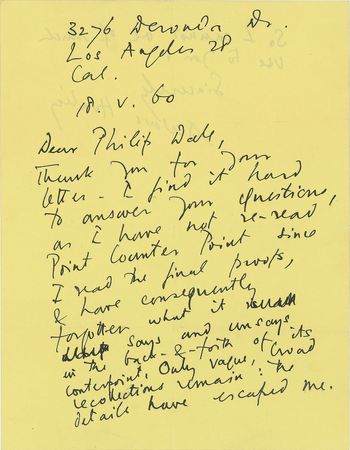 3276 Deronda Dr.
Los Angeles 28
Cal.
18. v. 60
Dear Philip Dale,
Thank you for your
letter - I find it hard
to answer your questions,
as I have not re-read
Point Counter Point since
I read the final proofs,
& have consequently
forgotten what it
says and unsays
in the back-&-forth of its
counterpoint. Only vague, broad
recollections remain: the
details have escaped me.